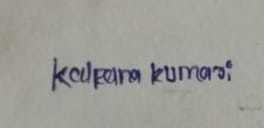 Kalpana kumari